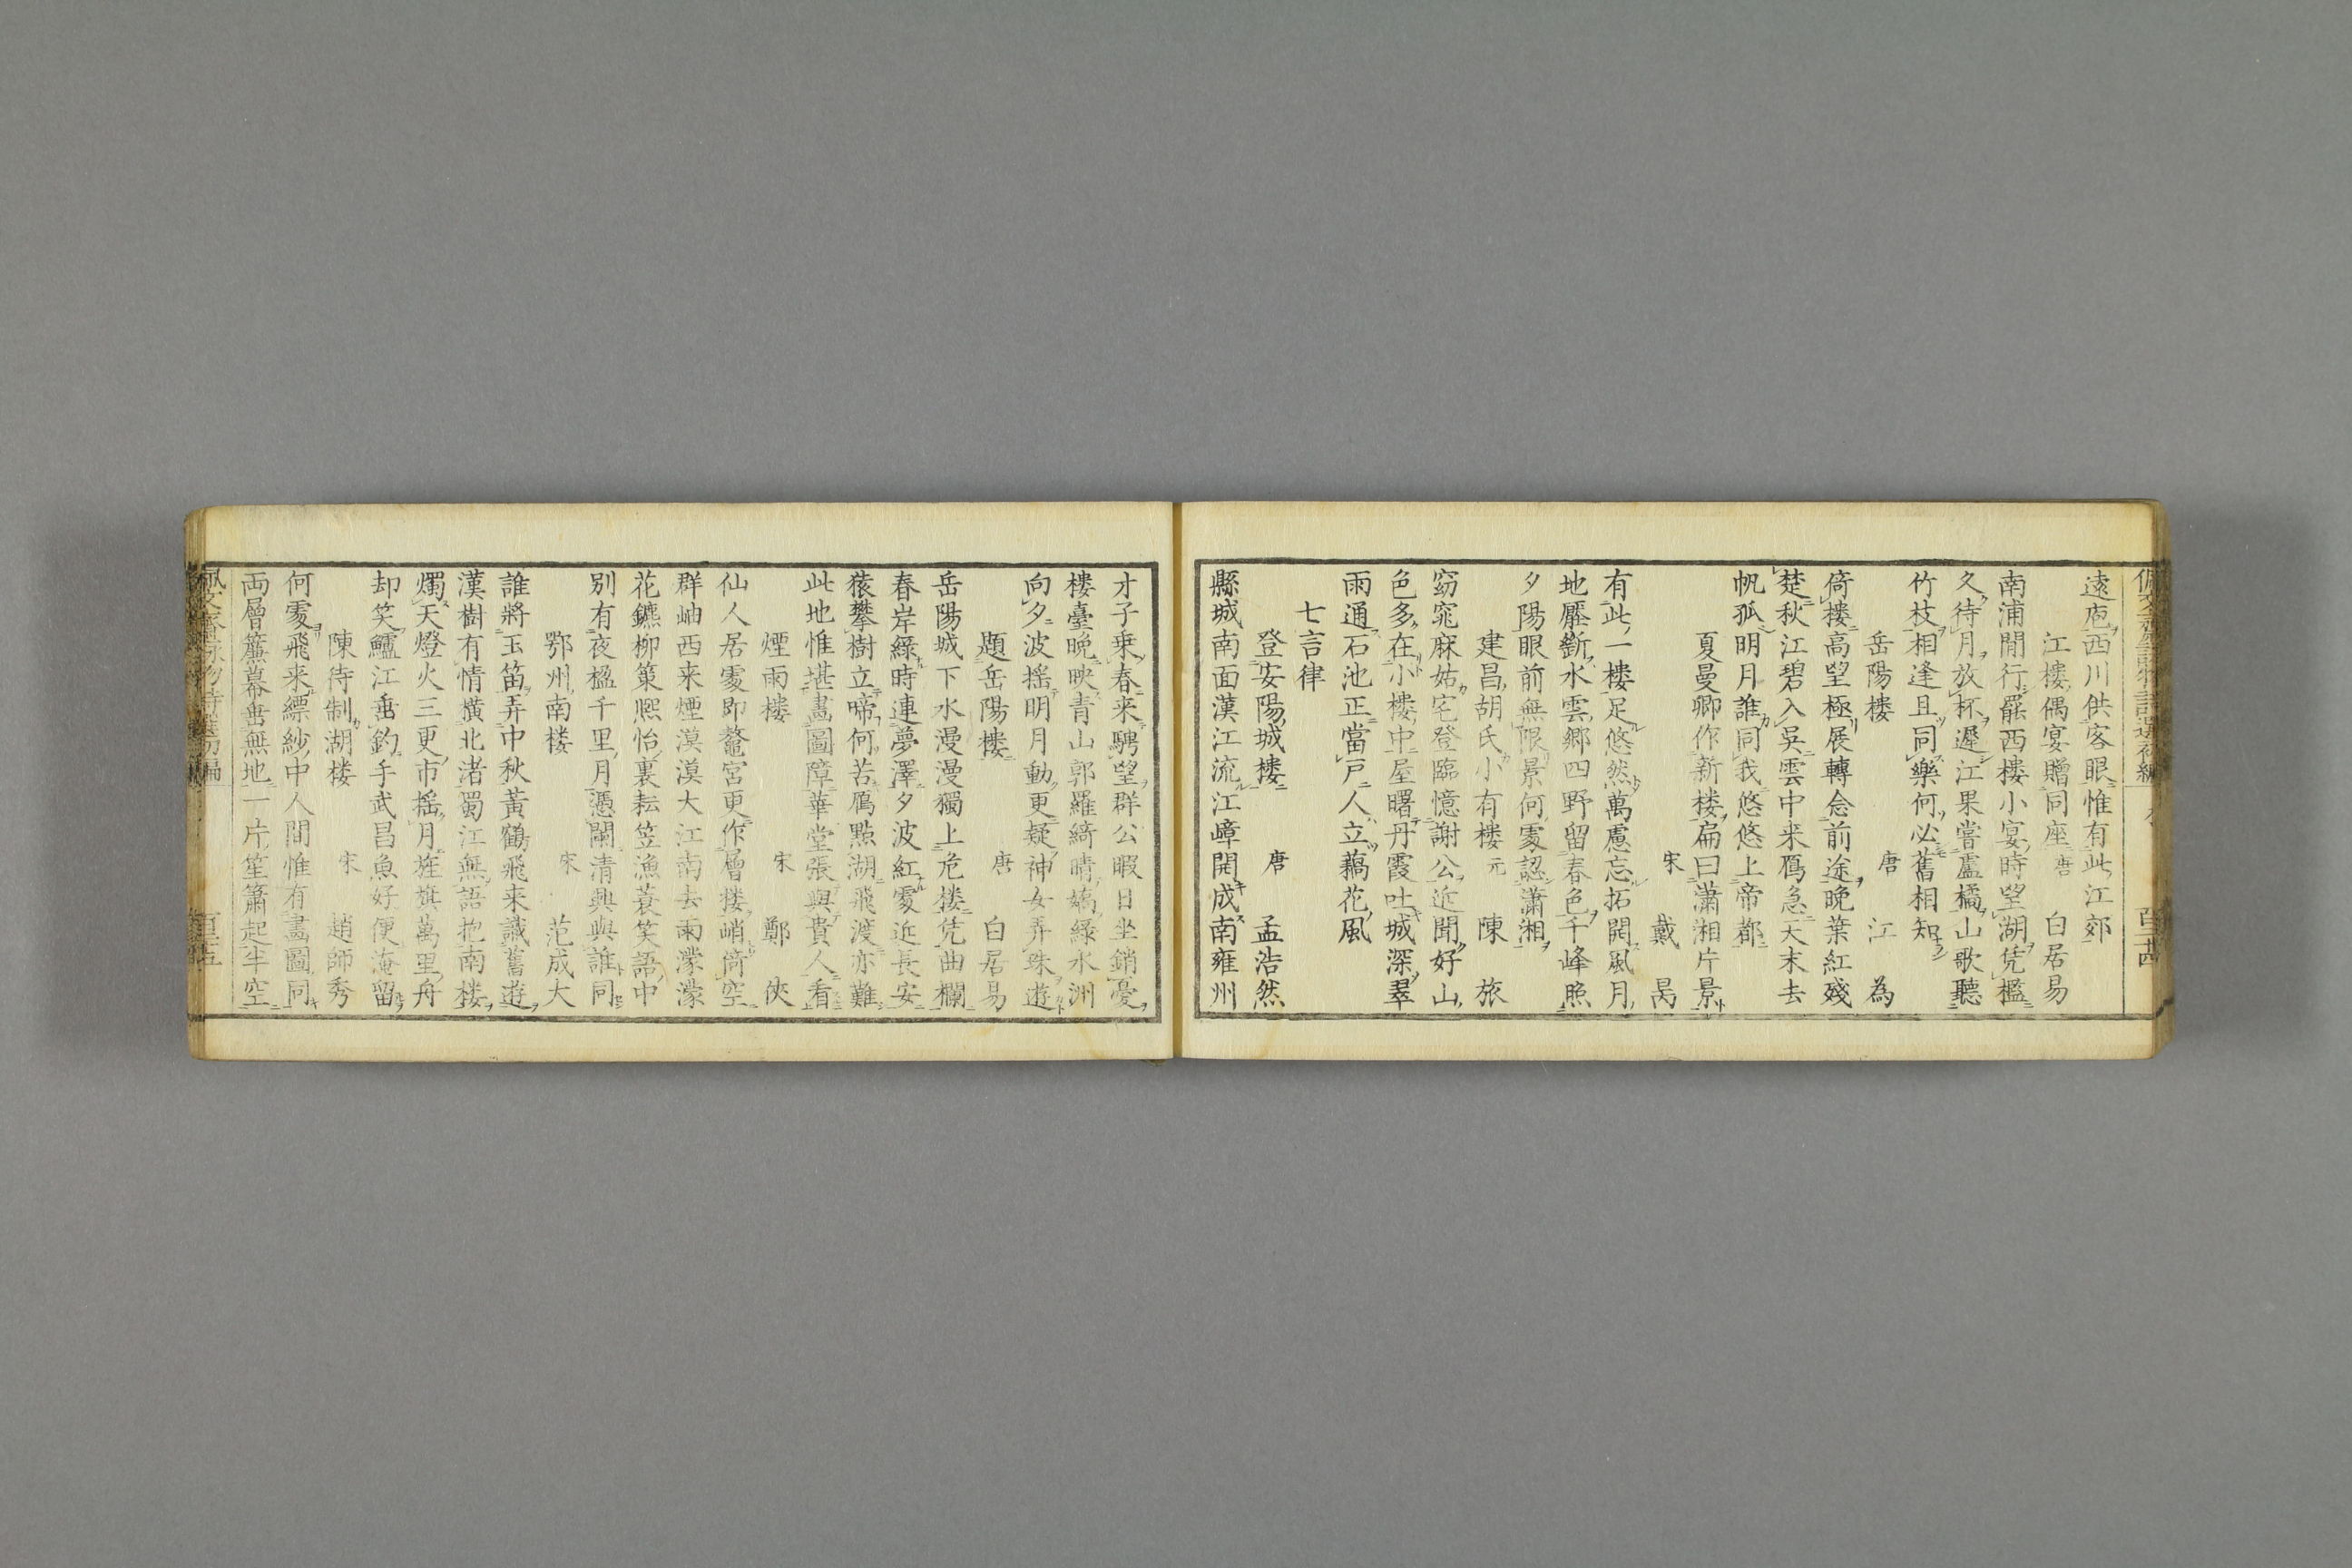 遠庖西川供客眼惟有此江郊
江楼偶宴贈同座 唐 白居易
南浦閒行罷西楼小宴時望湖凭檻
久待月放杯遲江果嘗盧橘山歌聽
竹枝相逢且同樂何必舊相知
岳陽楼 唐 江 為
倚楼高望極展轉念前途晩葉紅殘
楚秋江碧入吳雲中来鴈急天末去
帆孤明月誰同我悠悠上帝都
夏曼卿作新楼扁曰瀟湘片景
宋 戴 昺
有此一楼足悠然萬慮忘拓開風月
地壓斷水雲郷四野留春色千峰照
夕陽眼前無限景何處認瀟湘
建昌胡氏小有楼 元 陳 旅
窈窕麻姑宅登臨憶謝公近聞好山
色多在小楼中屋曙丹霞吐城深翠
雨通石池正當戸人立藕花風
七言律
登安陽城楼 唐 孟浩然
縣城南面漢江流江嶂開成南雍州
才子乗春来騁望群公暇日坐銷憂
楼臺晩映青山郭羅綺晴嬌緑水洲
向夕波揺明月動更疑神女弄珠遊
題岳陽楼 唐 白居易
岳陽城下水漫漫獨上危楼凭曲欄
春岸緑時連夢澤夕波紅處近長安
猿攀樹立啼何苦鴈點湖飛渡亦難
此地惟堪畫圖障華堂張與貴人看
煙雨楼 宋 鄭 俠
仙人居處即鼇宮更作層楼峭倚空
群岫西来煙漠漠大江南去雨濛濛
花鑣柳策熈怡裏耘笠漁蓑笑語中
別有夜檻千里月憑闌清興與誰同
鄂州南楼 宋 范成大
誰將玉笛弄中秋黃鶴飛来識舊遊
漢樹有情横北渚蜀江無語抱南楼
燭天燈火三更市揺月旌旗萬里舟
却笑鱸江垂釣手武昌魚好便淹留
陳待制湖楼 宋 趙師秀
何處飛来縹紗中人間惟有畫圖同
両層簾幕垂無地一片笙簫起半空